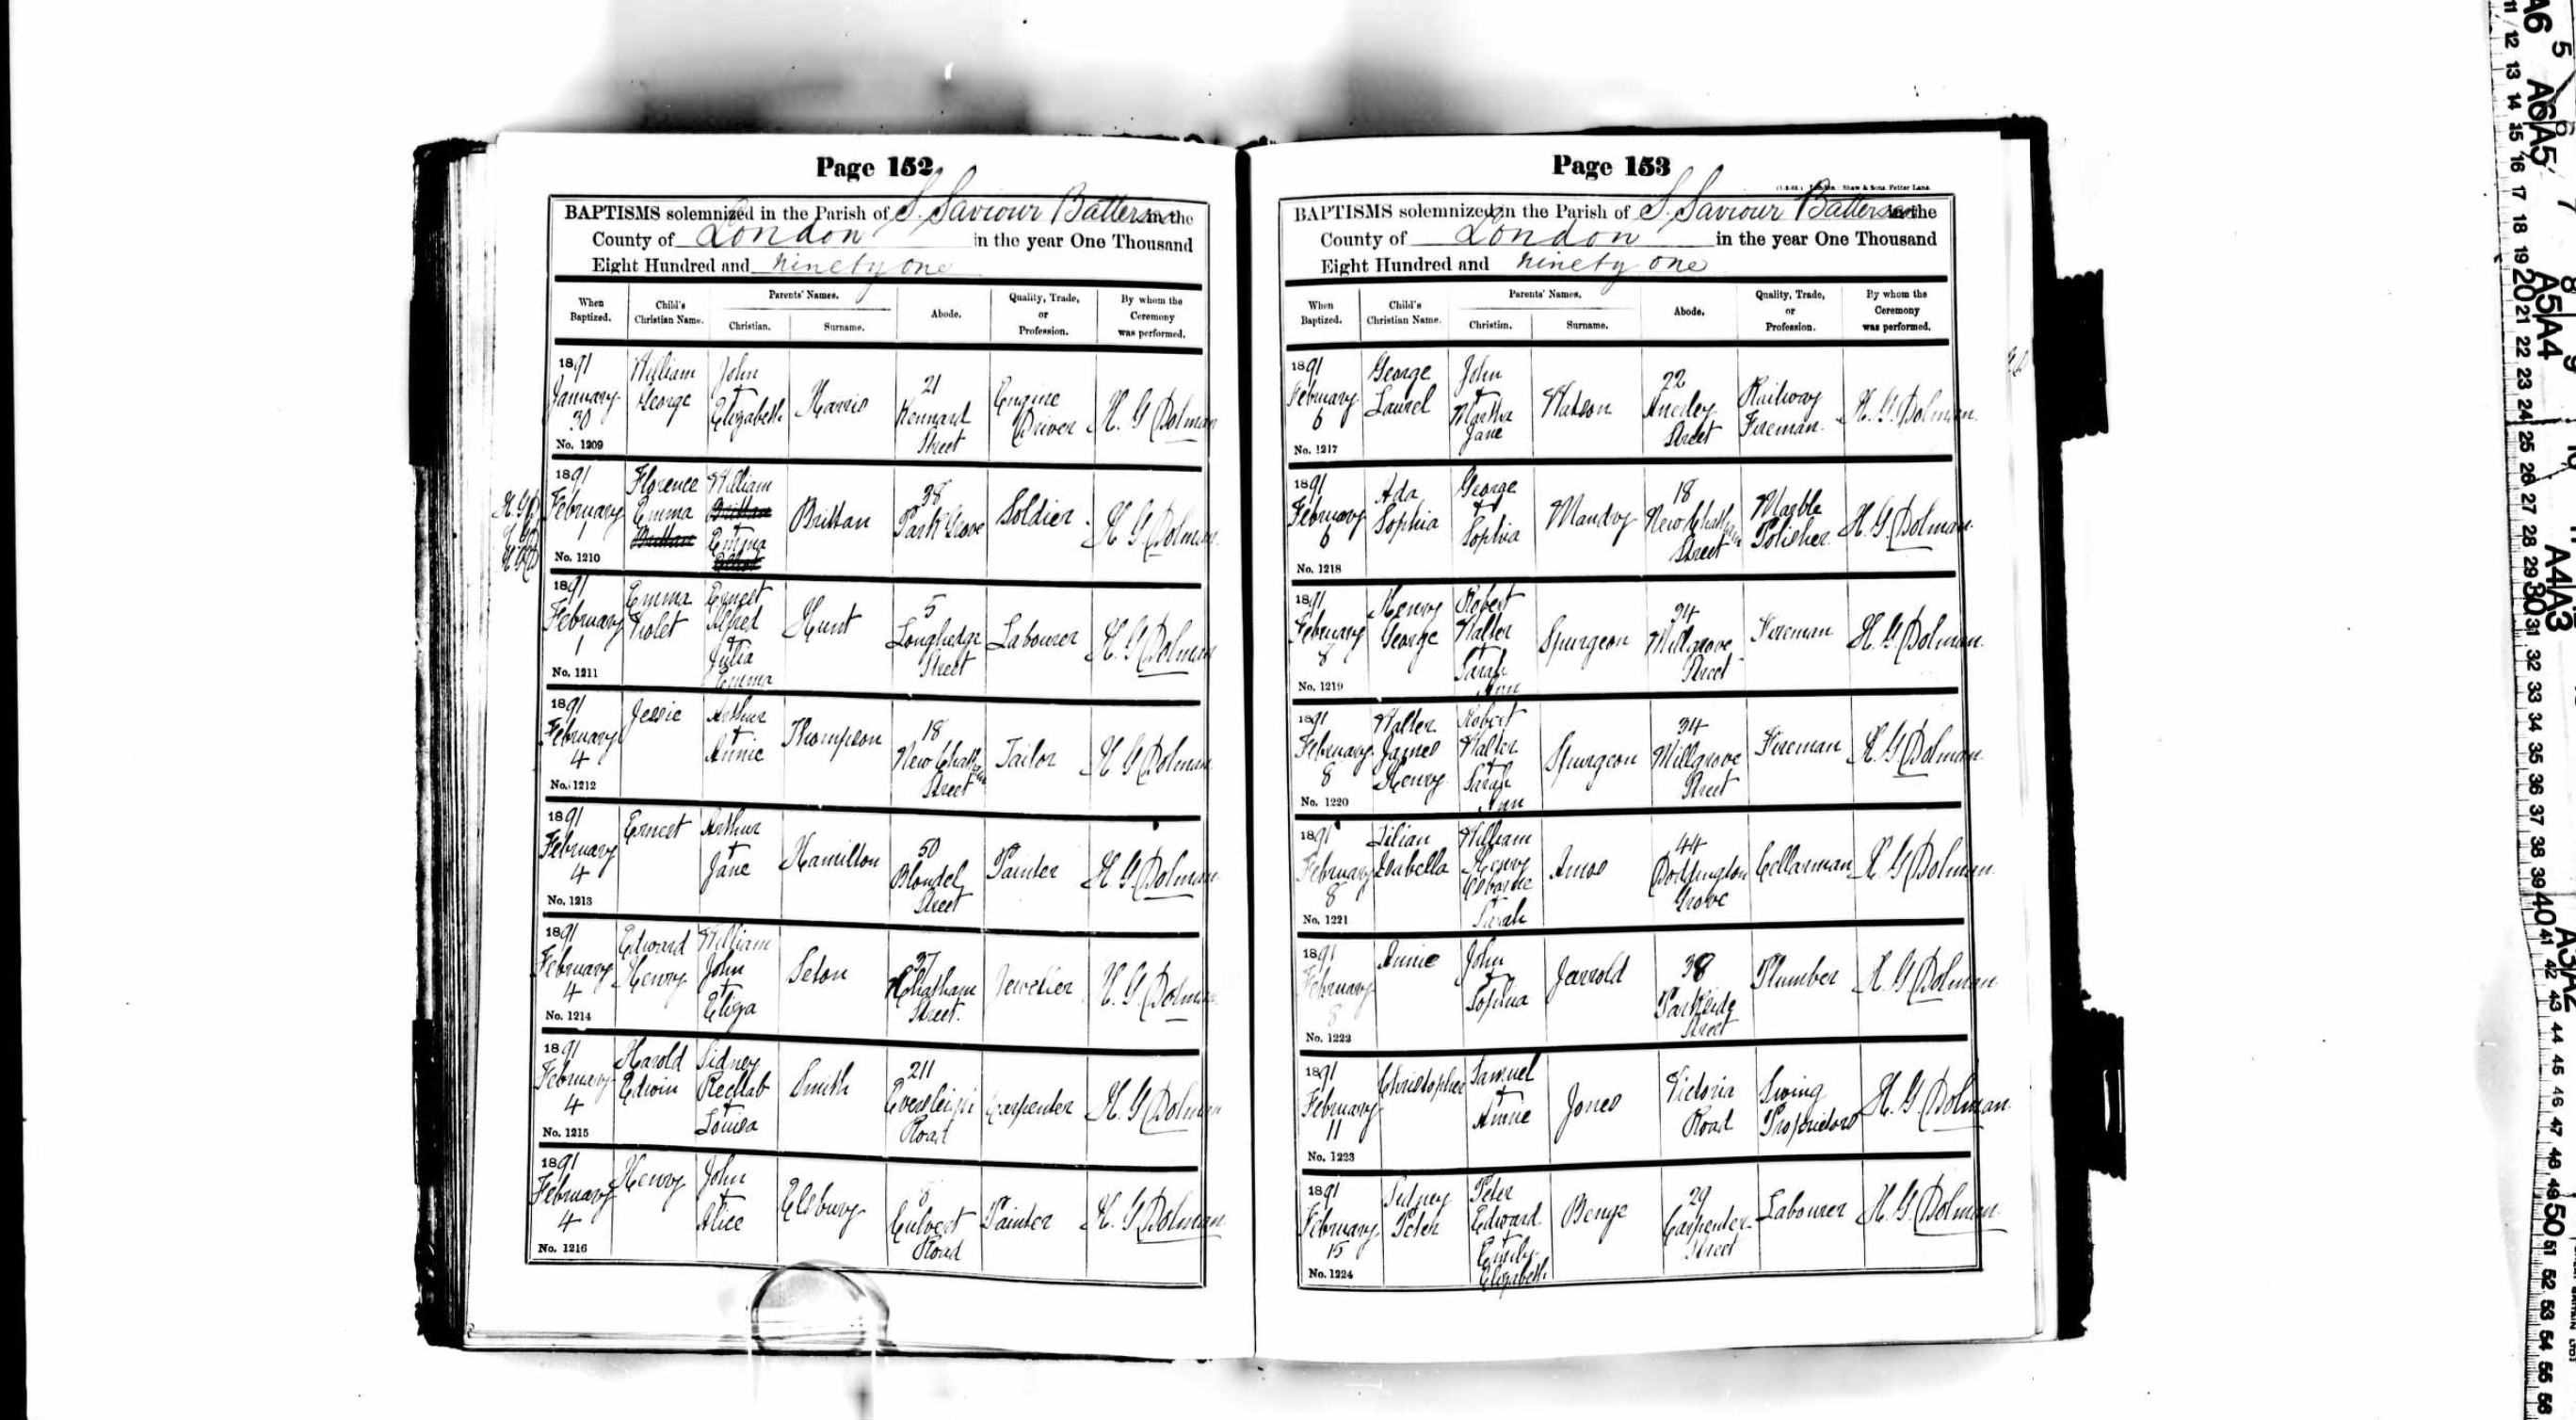 Page 152
BAPTISMS solemnized in the Parish of S. Saviour Battersea in the
County of London in the year One Thousand
Eight Hundred and ninety one
When Baptized.
Child's Christian Name.
Parents' Names.
Christian.
Surname.
Abode.
Quality, Trade, or Profession.
By whom the Ceremony was performed.
1891 January 30 No. 1209
William George
John + Elizabeth
Harris
21 Kennard Street
Engine Driver
H. G Dolman
1891 February 1 No. 1210
Florence Emma
William + Emma
Brittan
38 Park Grove
Soldier
H. G Dolman
1891 February 1 No. 1211
Emma Violet
Ernest Alfred + Julia Emma
Hunt
5 Longhedge Street
Labourer
H. G Dolman
1891 February 4 No. 1212
Jessie
Arthur + Annie
Thompson
18 New Chatham Street
Tailor
H G Dolman
1891 February 4 No. 1213
Ernest
Arthur + Jane
Hamilton
50 Blondel Street
Painter
H G Dolman
1891 February 4 No. 1214
Edward Henry
William John + Eliza
Seton
Chatham Street.
Jeweller
H. G. Dolman
1891 February 4 No. 1215
Harold Edwin
Sidney Rechab + Louisa
Smith
211 Eversleigh Road
Carpenter
H. G Dolman
1891 February 4 No. 1216
Henry
John + Alice
Elsbury
8 Culvert Road
Painter
H. G Dolman
Page 153
BAPTISMS solemnized in the Parish of S. Saviour Battersea in the
County of London in the year One Thousand
Eight Hundred and ninety one
When Baptized.
Child's Christian Name.
Parents' Names.
Christian.
Surname.
Abode.
Quality, Trade, or Profession.
By whom the Ceremony was performed.
1891 February 6 No. 1217
George Laurel
John + Martha Jane
Watson
22 Anerley Street
Railway Fireman.
H. G. Dolman.
1891 February 6 No. 1218
Ada Sophia
George + Sophia
Mandry
18 New Chatham Street
Marble Polisher
H. G. Dolman.
1891 February 8 No. 1219
Henry George
Robert Walter + Sarah Ann
Spurgeon
34 Millgrove Street
Fireman
H. G. Dolman.
1891 February 8 No. 1220
Walter James Henry
Robert Walter + Sarah Ann
Spurgeon
34 Millgrove Street
Fireman
H. G Dolman.
1891 February 8 No. 1221
Lilian Isabella
William Henry Osborne Sarah
Amos
44 Doddington Grove
Cellarman
H. G Dolman.
1891 February 8 No. 1222
Annie
John + Sophia
Jarrold
38 Parkside Street
Plumber
H. G Dolman.
1891 February 11 No. 1223
Christopher
Samuel + Annie
Jones
Victoria Road
Swing Proprietor
H. G. Dolman.
1891 February 15 No. 1224
Sidney Peter
Peter Edward + Emily Elizabeth
Benge
29 Carpenter Street
Labourer
H. G. Dolman.